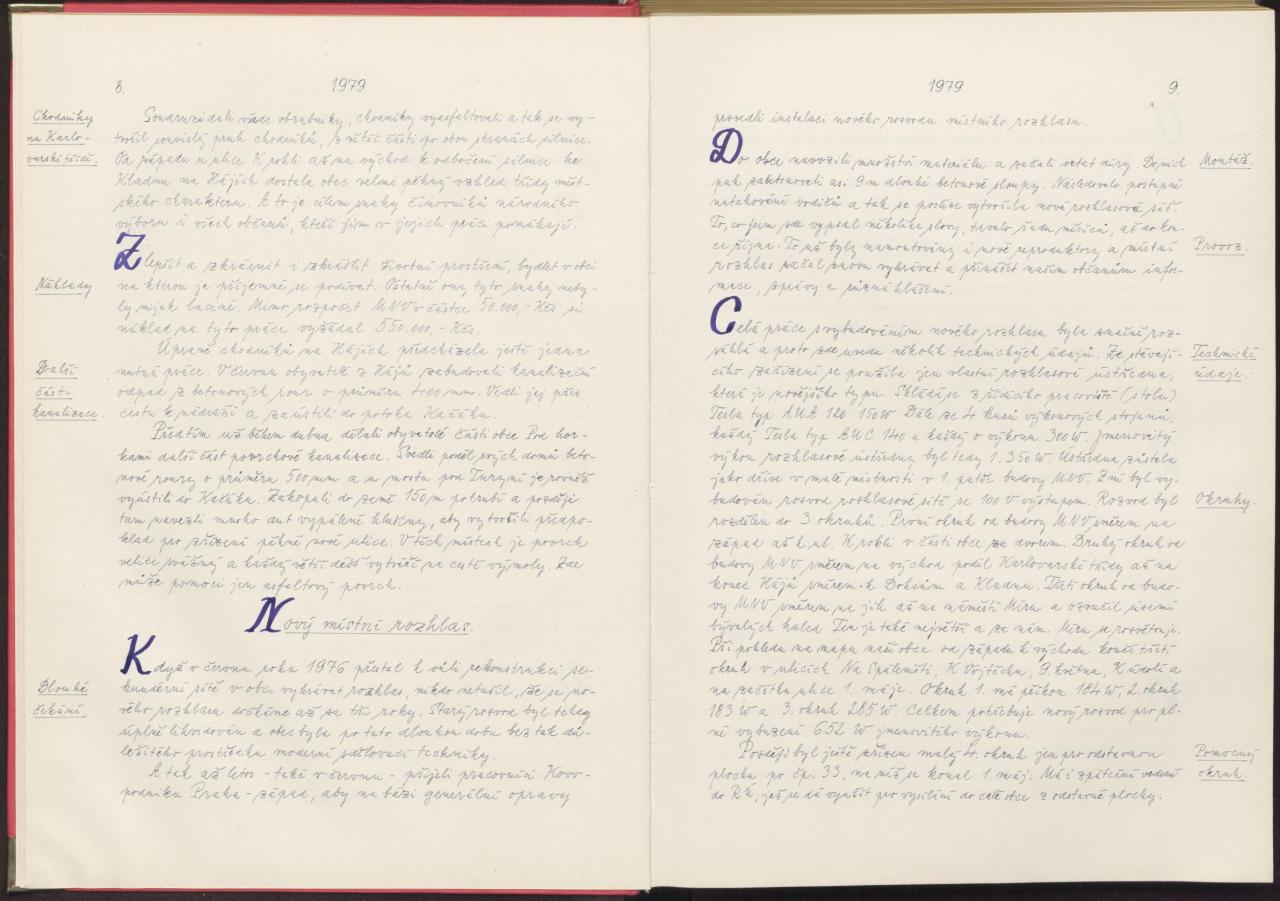 8.
1979
Chodníky
na Karlo-
varské třídě.
Soudruzi dali všude obrubníky, chodníky vyasfaltovali a tak se vy-
tvořil souvislý pruh chodníků, z větší části po obou stranách silnice.
Od západu u ulice K rokli až na východ k odbočení silnice ke
Kladnu na Hájích dostala obec velmi pěkný vzhled třídy měst-
ského charakteru. A to je cílem snahy činovníků národního
výboru i všech občanů, kteří jim v jejich práci pomáhají.
Zlepšit a zkrásnit i zkrášlit životní prostředí, bydlet v obci
na kterou je příjemné se podívat. Ostatně ony tyto snahy neby-
Náklady.
ly nijak laciné. Mimo rozpočet MNV v částce 50.000,- Kčs si
náklad na tyto práce vyžádal 550.000,- Kčs.
Úpravě chodníků na Hájích předcházela ještě jedna
Další
část
kanalizace.
nutná práce. V červnu obyvatelé z Hájů zabudovali kanalizační
odpad z betonových rour o průměru 400 mm. Vedli jej přes
cestu k nádraží a zaústili do potoka Kačáku.
Předtím už během dubna dělali obyvatelé části obce Pod hor-
kami další část povrchové kanalizace. Svedli podél svých domů beto-
nové roury o průměru 500 mm a u mostu pod Turyní je rovněž
vyústili do Kačáku. Zakopali do země 150 m potrubí a později
tam navezli mnoho aut vypálené hlušiny, aby vytvořili předpo-
klad pro zřízení pěkné nové ulice. V těch místech je povrch
velice svážný a každý větší déšť vytváří na cestě výmoly. Zde
může pomoci jen asfaltový povrch.
Nový místní rozhlas.
Když v červnu roku 1976 přestal k vůli rekonstrukci se-
Dlouhé
čekání.
kunderní sítě v obci vyhrávat rozhlas, nikdo netušil, že se no-
vého rozhlasu dočkáme až za tři roky. Starý rozvod byl tehdy
úplně likvidován a obec byla po tuto dlouhou dobu bez tak dů-
ležitého prostředku moderní sdělovací techniky.
A tak až letos - také v červnu - přijeli pracovníci Kovo-
podniku Praha - západ, aby na bázi generální opravy
1979
9
provedli instalaci nového rozvodu místního rozhlasu.
Do obce navozili množství materiálu a začali vrtat díry. Do nich
Montáž.
pak zabetonovali asi 9 m dlouhé betonové sloupy. Následovalo postupné
natahování vodičů a tak se posléze vytvořila nová rozhlasová síť.
To, co jsem zde vypsal několika slovy, trvalo řadu měsíců, až do kon-
ce října. To už byly namontovány i nové reproduktory a místní
Provoz.
rozhlas začal znovu vyhrávat a přinášet našim občanům infor-
mace, zprávy a různá hlášení.
Celá práce s vybudováním nového rozhlasu byla značně roz-
sáhlá a proto zde uvedu několik technických údajů. Ze stávají-
Technické
údaje.
cího zařízení se použila jen vlastní rozhlasová ústředna,
která je novějšího typu. Skládá se z řídícího pracoviště (stolu)
Tesla typ AUA 120 150 W Dále ze 4 kusů výkonových stojanů,
každý Tesla typ AUC 140 a každý o výkonu 300 W. Jmenovitý
výkon rozhlasové ústředny byl tedy 1.350 W. Ústředna zůstala
jako dříve v malé místnosti v 1. patře budovy MNV. Z ní byl vy-
budován rozvod rozhlasové sítě se 100 V výstupem. Rozvod byl
Okruhy.
rozdělen do 3 okruhů. První okruh od budovy MNV směrem na
západ až k ul. K rokli v části obce za dvorem. Druhý okruh od
budovy MNV směrem na východ podél Karlovarské třídy až na
konec Hájů směrem k Doksům a Kladnu. Třetí okruh od budo-
vy MNV směrem na jih až na náměstí Míru a ozvučil území
bývalých hald. Ten je také největší a za nám. Míru se rozvětvuje.
Při pohledu na mapu naší obce od západu k východu končí třetí
okruh v ulicích Na Spáleništi, K Vojtěchu, 9. května, K údolí a
na začátku ulice 1. máje. Okruh 1. má příkon 184 W, 2. okruh
183 W a 3. okruh 285 W. Celkem potřebuje nový rozvod pro pl-
né vybuzení 652 W jmenovitého výkonu.
Později byl ještě zřízen malý 4. okruh jen pro odstavnou
Pomocný
okruh.
plochu po čp. 33, na níž se konal 1. máj. Má i zpáteční vedení
do RÚ, jež se dá využít pro vysílání do celé obce z odstavné plochy.